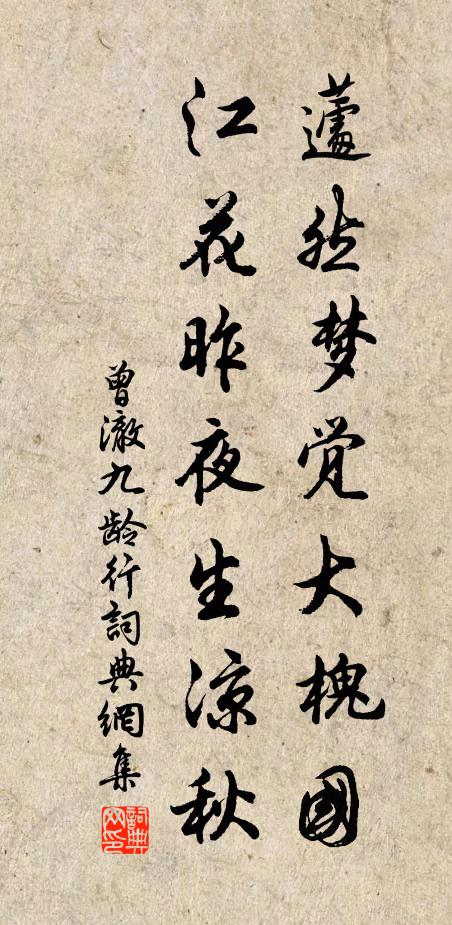 蘧然梦觉大槐國
江花昨夜生涼秋
曾澈九龄行詞典網集
詞典网印